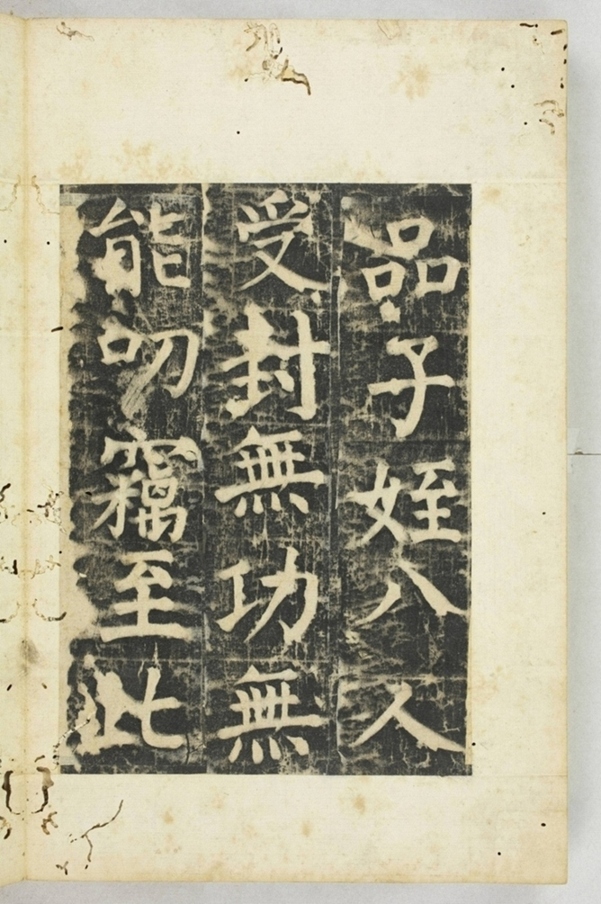 品子姪八人
受封無功無
能叨竊至此